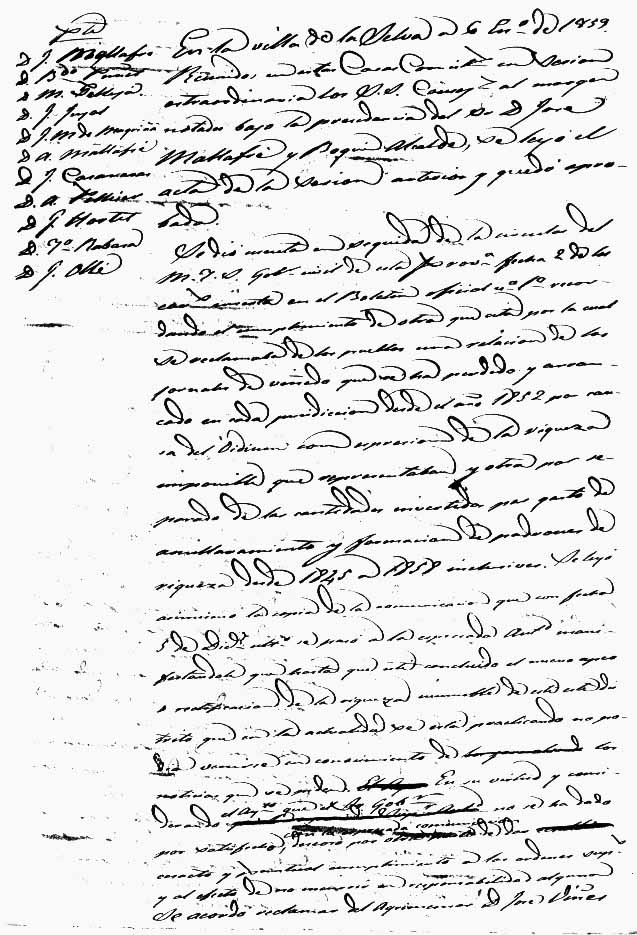 Pte
D. J. Mallafré
D. Bdo
D. M. Pellejà
D. J. Jujol
D. J. M. de
D. A. Mallafré
D. J. Casanovas
D. A.
D. J. Hortet
D. Fo. Rabasa
D. J. Ollé
En la villa de la Selva a 6 Eno. de 1859.
Reunido, en estas Casas Consist.s en sesion
estraordinaria los S.S. Concej.s al margen
notados bajo la presidencia del Sr. D. José
Mallafré y Boqué Alcalde, se leyó el
acta de la sesion anterior y quedó apro-
bada.
Se dió cuenta en seguida de la circular del
M. I. S. Gob.r civil de esta Prov.a fecha 2 de los
corrientes inserta en el Boletin oficial no. 1o. recor-
dando el cumplimiento de otra que por la cual
se reclamaba de los pueblos una relacion de los
jornales de viñedo que se ha perdido y arran-
cado en cada jurisdiccion desde el año 1852 por cau-
sa del Oidium con espresion de la riqueza
imponible que representaban y otra por se-
parado de las cantidades invertidas por gasto de
amillaramiento y formacion de padrones de
riqueza desde 1845 a 1858 inclusives. Se leyó
asimismo la copia de la comunicacion que con fecha
5 de Dic.e ult.o se pasó a la espresada Aut.d mani-
festandole que hasta que esté concluido el nuevo apeo
o rectificacion de la riqueza inmueble de este
trito que en la actualidad se está practicando no po-
dia venirse en conocimiento de los
noticias que se piden. En su virtud y consi-
derando que el Sr. Gob.r no se ha dado
por satisfecho, deseoso de dar
exacto y puntual cumplimiento a las ordenes sup.s
y al efecto de no incurrir en responsabilidad alguna
Se acordó reclamar del Agrimensor D. José Viñes